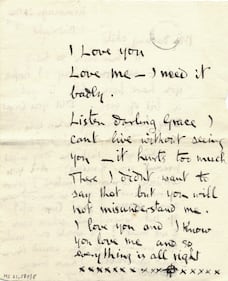 I Love you
Love me — I need it
badly.
Listen darling Grace I
cant live without seeing
you — it hurts too much
There I didnt want to
say that but you will
not misunderstand me.
I love you and I know
you love me and so
everything is all right
x x x x x x x x x x x x x x